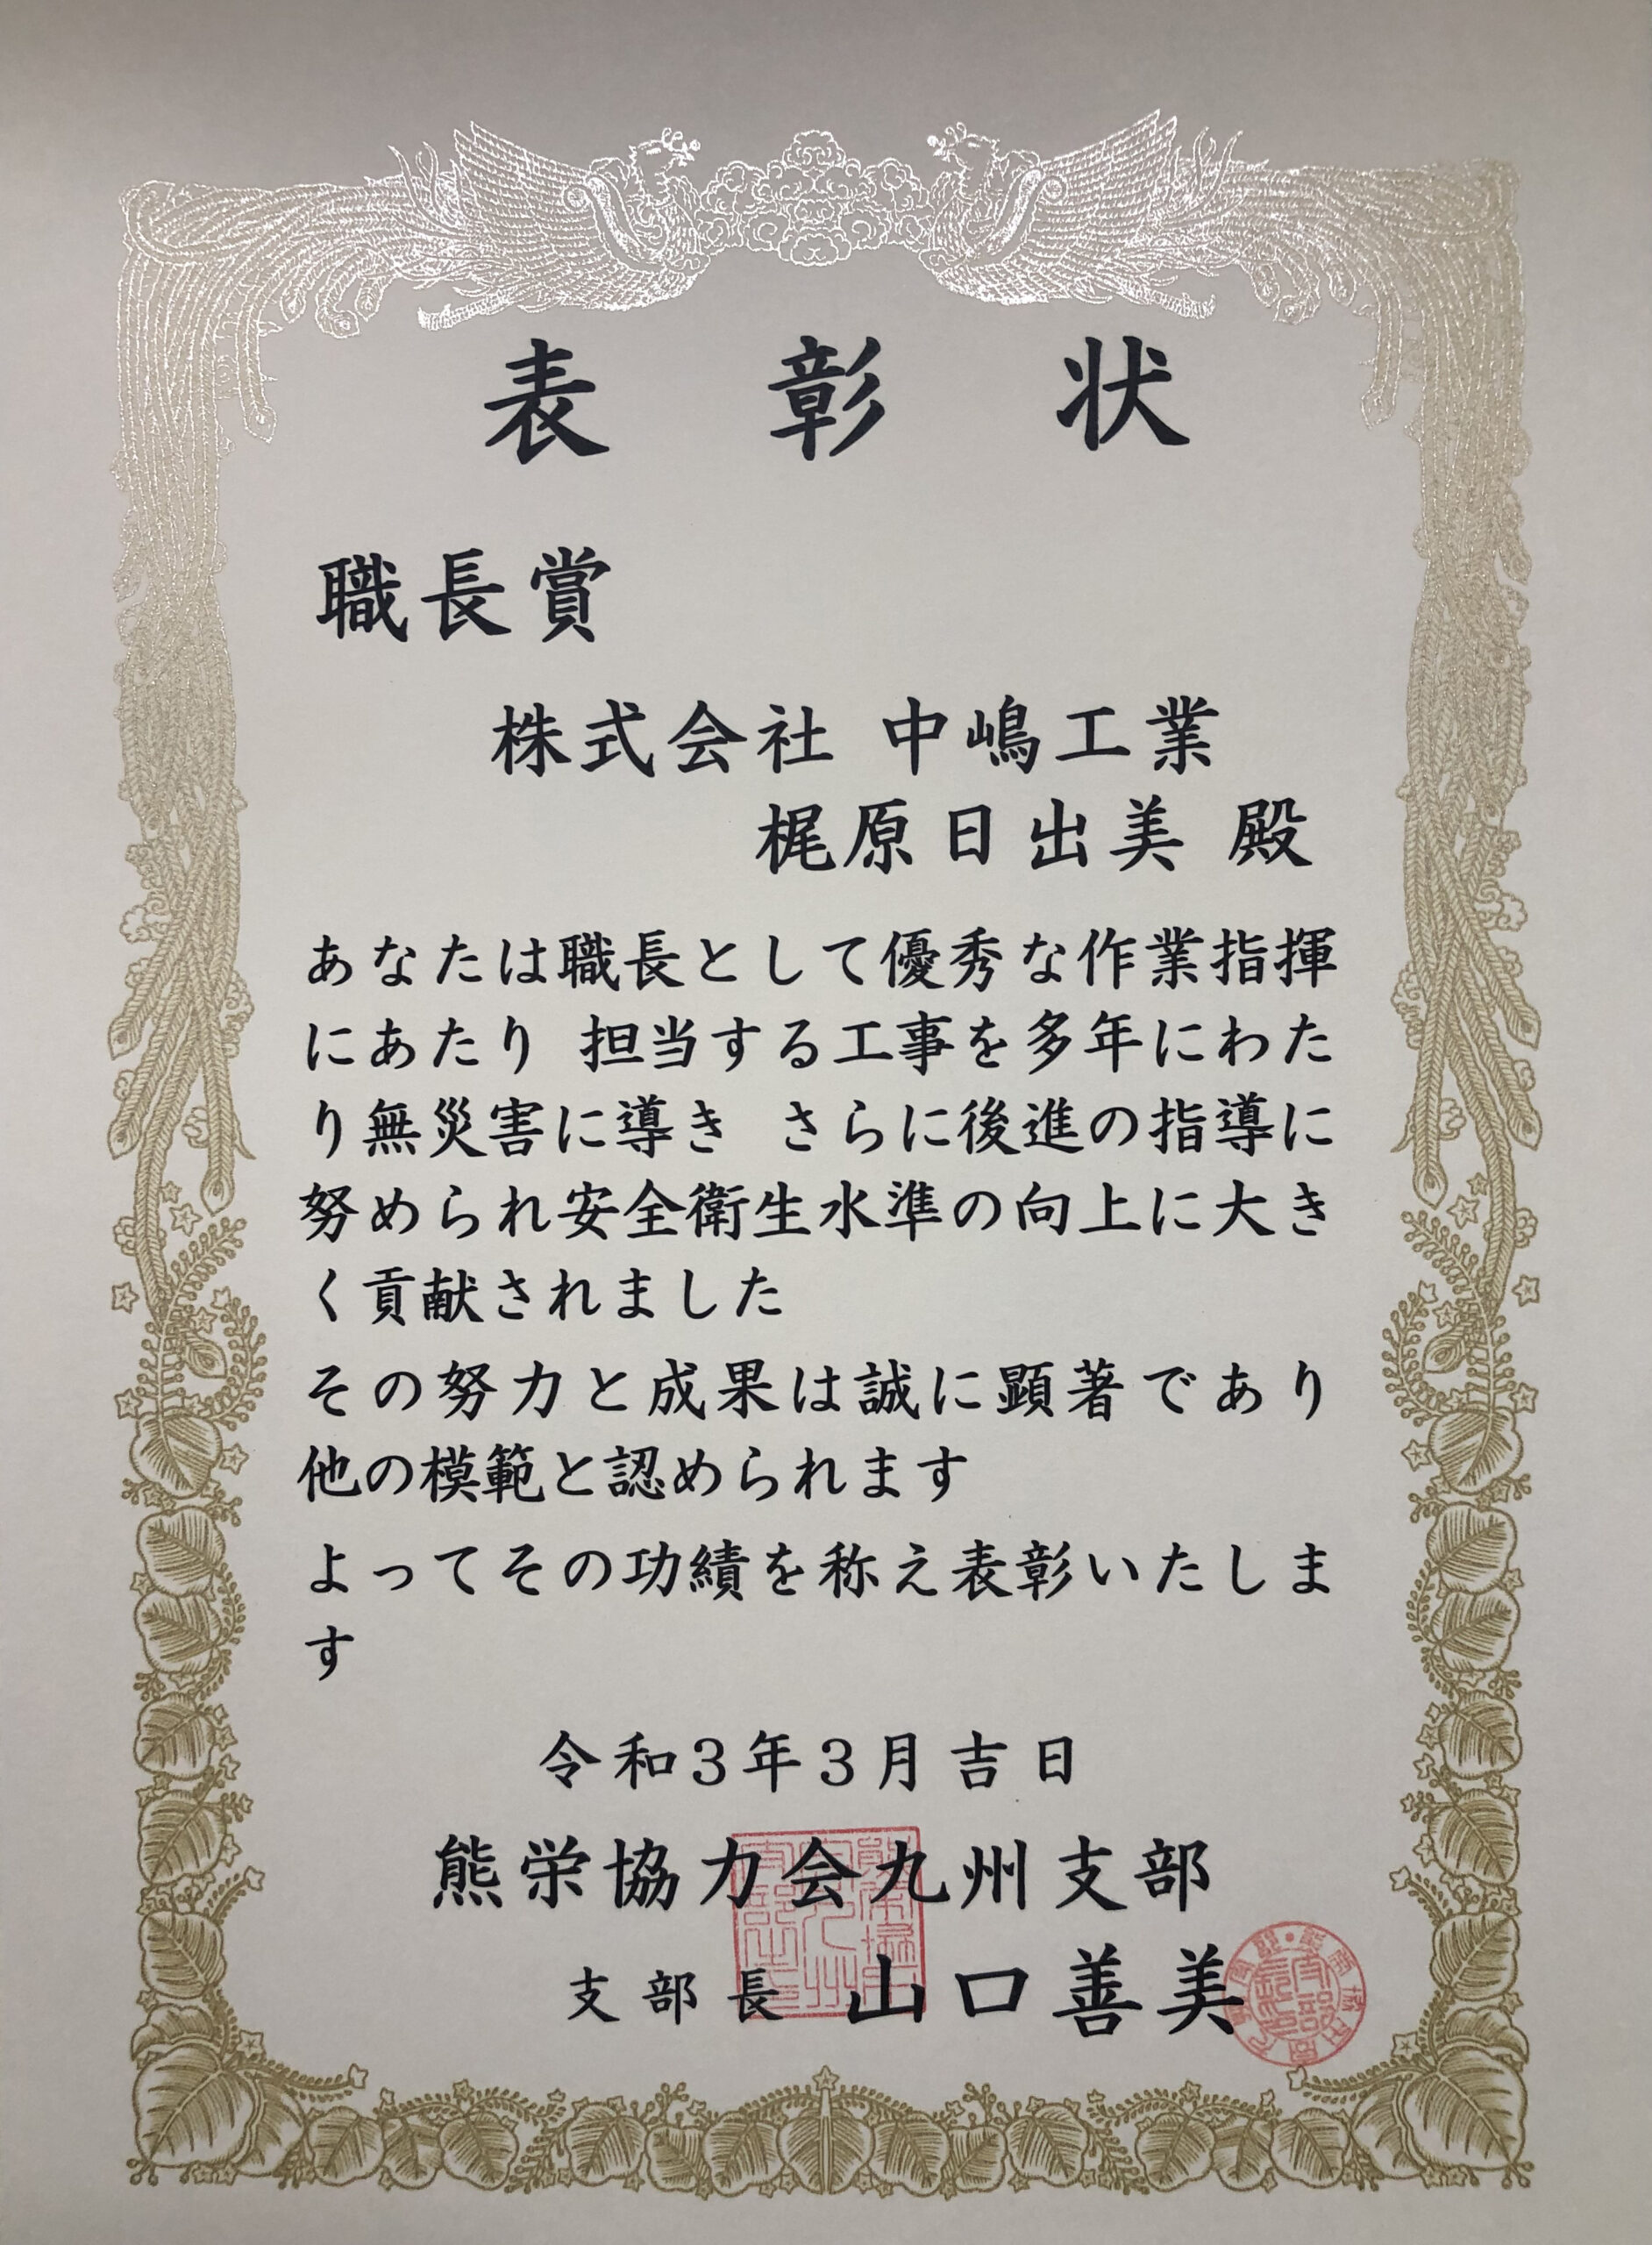 表彰状
職長賞
株式会社 中嶋工業
梶原日出美 殿
あなたは職長として優秀な作業指揮
にあたり 担当する工事を多年にわた
り無災害に導き さらに後進の指導に
努められ安全衛生水準の向上に大き
く貢献されました
その努力と成果は誠に顕著であり
他の模範と認められます
よってその功績を称え表彰いたしま
す
令和3年3月吉日
熊栄協力会九州支部
支部長 山口善美